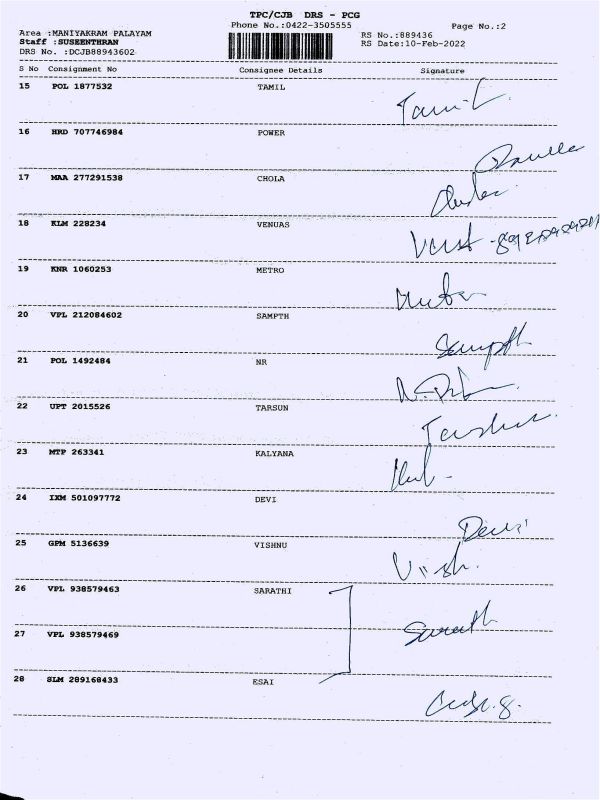 TPC/CJB DRS - PCG
Phone No.:0422-3505555
Page No.:2
Area :MANIYAKRAM PALAYAM
Staff :SUSEENTHRAN
DRS No. :DCJB88943602
RS No.:889436
RS Date:10-Feb-2022
S No Consignment No Consignee Details Signature
15 POL 1877532 TAMIL
Tamil
16 HRD 707746984 POWER
17 MAA 277291538 CHOLA
18 KLM 228234 VENUAS
19 KNR 1060253 METRO
20 VPL 212084602 SAMPTH
Sampth
21 POL 1492484 NR
22 UPT 2015526 TARSUN
23 MTP 263341 KALYANA
24 IXM 501097772 DEVI
Devi
25 GPM 5136639 VISHNU
Vish.
26 VPL 938579463 SARATHI
27 VPL 938579469
28 SLM 289168433 ESAI